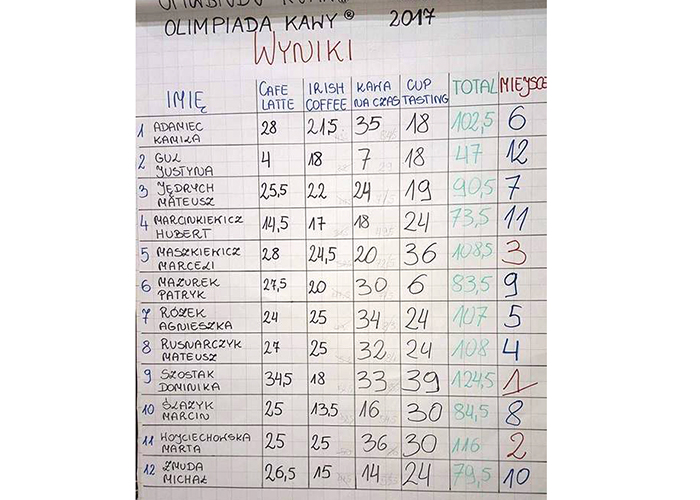 OLIMPIADA KAWY® 2017
WYNIKI
IMIĘ CAFE LATTE IRISH COFFEE KAWA NA CZAS CUP TASTING TOTAL MIEJSCE
1 ADAMIEC KAMILA 28 21,5 35 18 102,5 6
2 GUZ JUSTYNA 4 18 7 18 47 12
3 JĘDRYCH MATEUSZ 25,5 22 24 19 90,5 7
4 MARCINKIEWICZ HUBERT 14,5 17 18 24 73,5 11
5 MASZKIEWICZ MARCELI 28 24,5 20 36 108,5 3
6 MAZUREK PATRYK 27,5 20 30 6 83,5 9
7 RÓŻEK AGNIESZKA 24 25 34 24 107 5
8 RUSNARCZYK MATEUSZ 27 25 32 24 108 4
9 SZOSTAK DOMINIKA 34,5 18 33 39 124,5 1
10 ŚLAZYK MARCIN 25 13,5 16 30 84,5 8
11 WOJCIECHOWSKA MARTA 25 25 36 30 116 2
12 ŻMUDA MICHAŁ 26,5 15 14 24 79,5 10